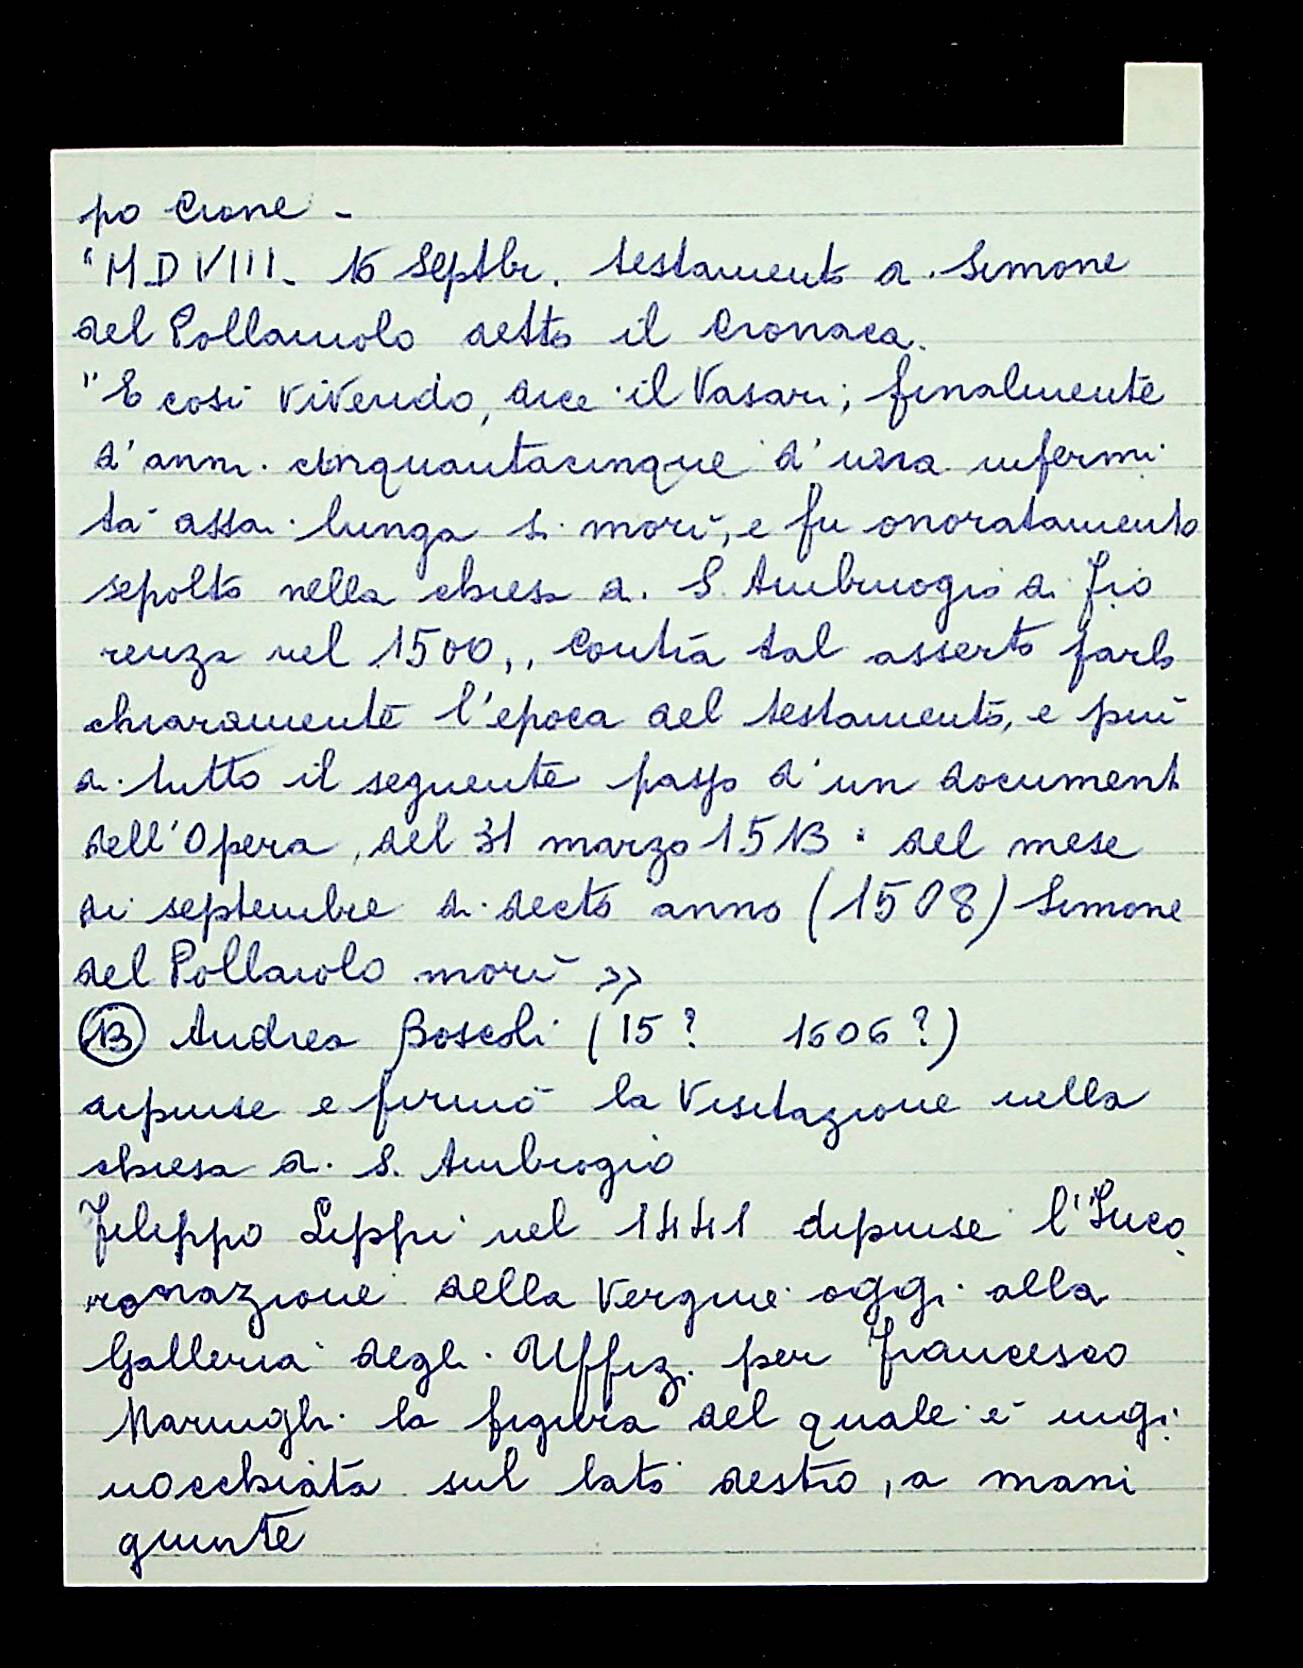 po Cione -
"M.D.VIII. 16 Septbr. testamento di Simone
del Pollaiuolo detto il Cronaca.
"E così vivendo, dice il Vasari; finalmente
d'anni cinquantacinque d'una infermi
tà assai lunga si morì, e fu onoratamente
sepolto nella chiesa di S. Ambruogio di Fio
renza nel 1500,, Contra tal asserto parla
chiaramente l'epoca del testamento, e più
di tutto il seguente passo d'un document
dell'Opera, del 31 marzo 1513: del mese
di septembre di decto anno (1508) Simone
del Pollaiolo morì »
(13) Andrea Boscoli (15? 1606?)
dipinse e firmò la Visitazione nella
chiesa di S. Ambrogio
Filippo Lippi nel 1441 dipinse l'Inco
ronazione della Vergine oggi alla
Galleria degli Uffizi per Francesco
Maringhi la figura del quale è ingi
nocchiata sul lato destro, a mani
giunte